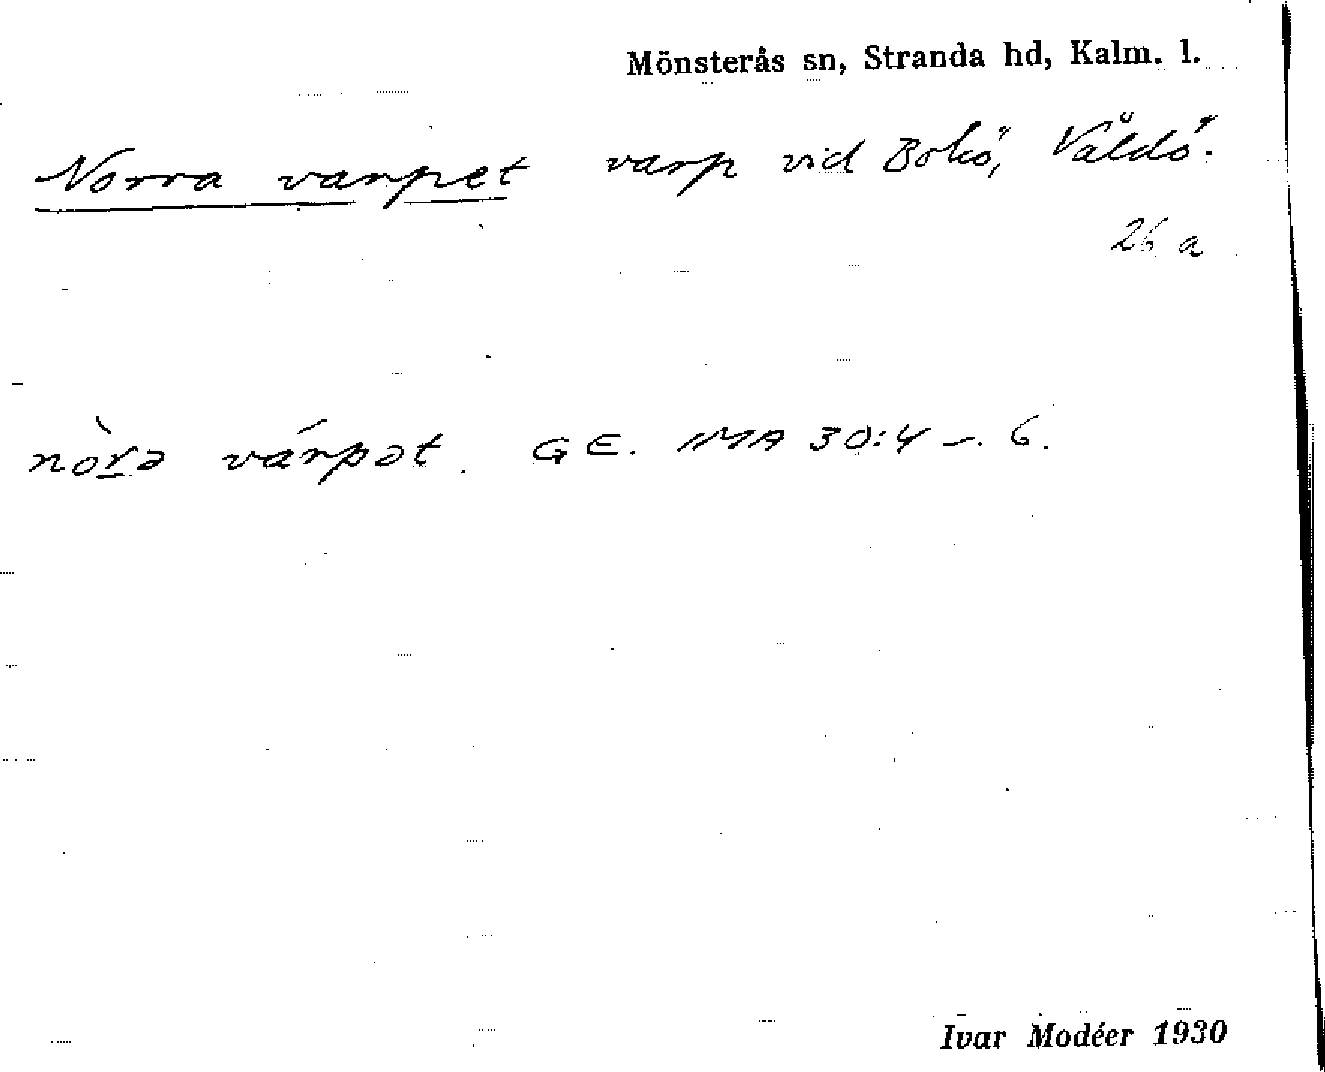 Mönsterås sn, Stranda hd, Kalm. l.
Norra varpet varp vid Bokö, Vållö.
26 a
nòrə várpət. GE. IMA 30:4 –. 6.
Ivar Modéer 1930